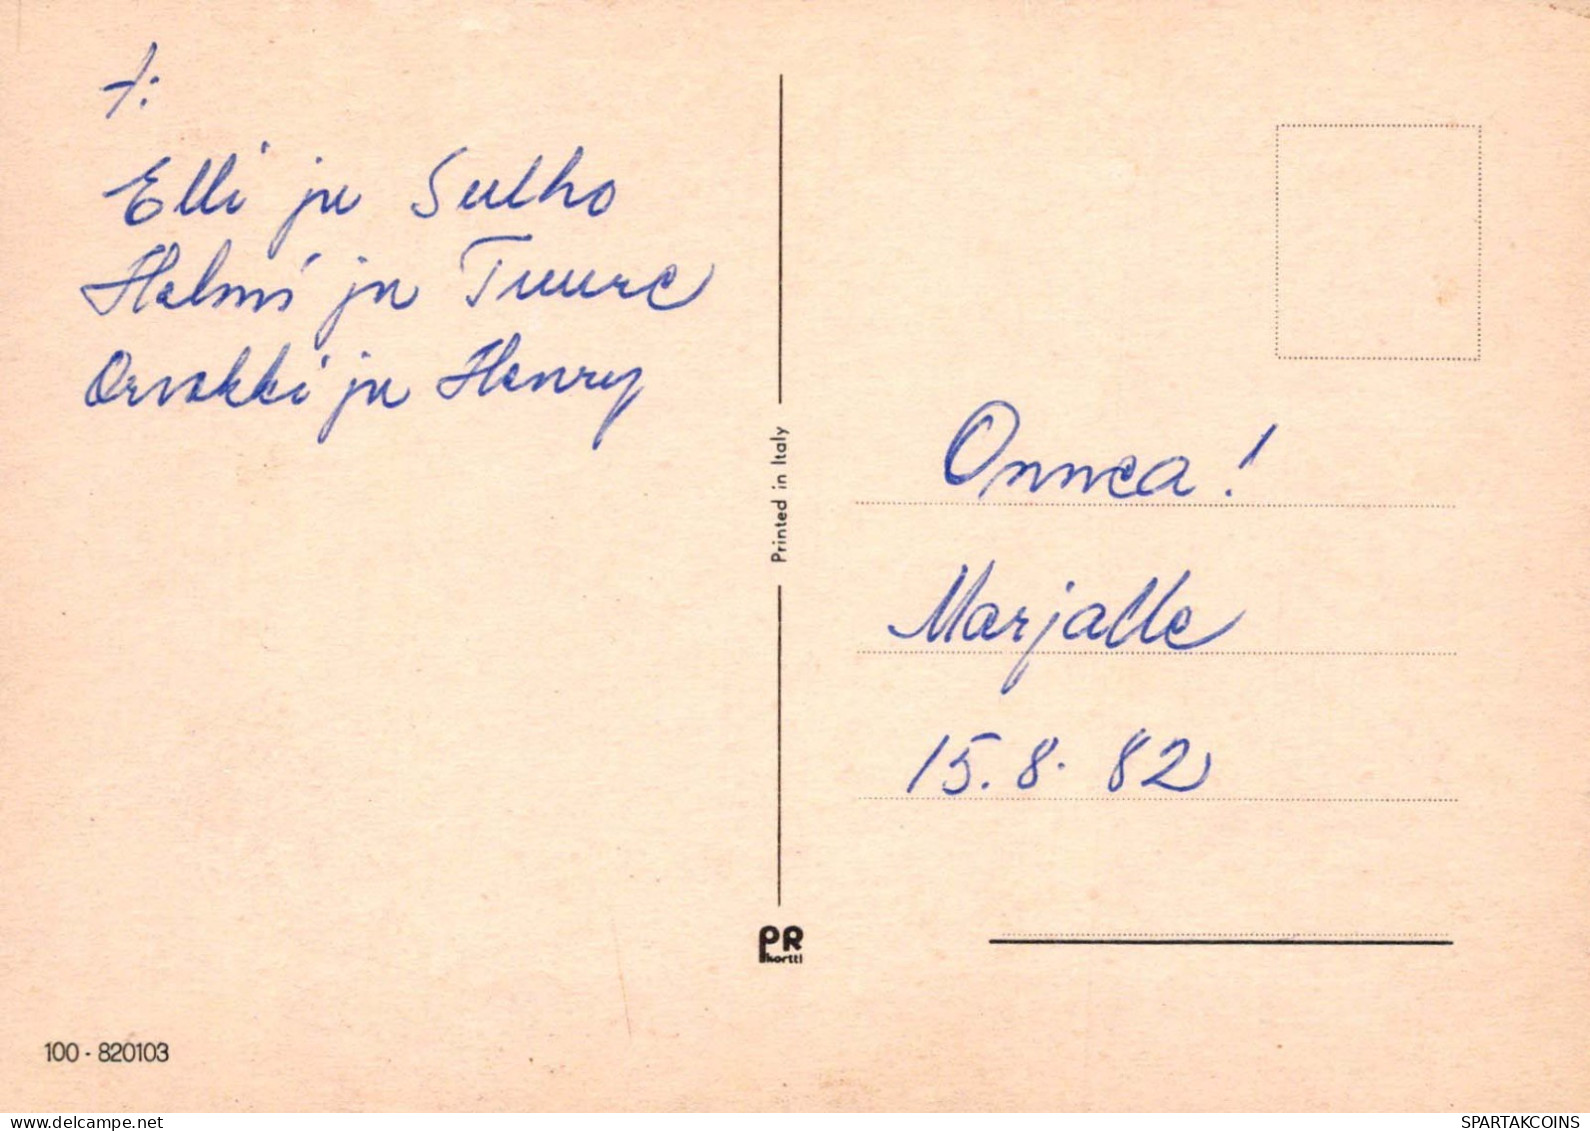 t:
Elli ja Sulho
Helmi ja Tuure
Orvokki ja Henry
Printed in Italy
Onnea!
Marjalle
15.8.82
PR
kortti
100 - 820103
www.delcampe.net
SPARTAKCOINS